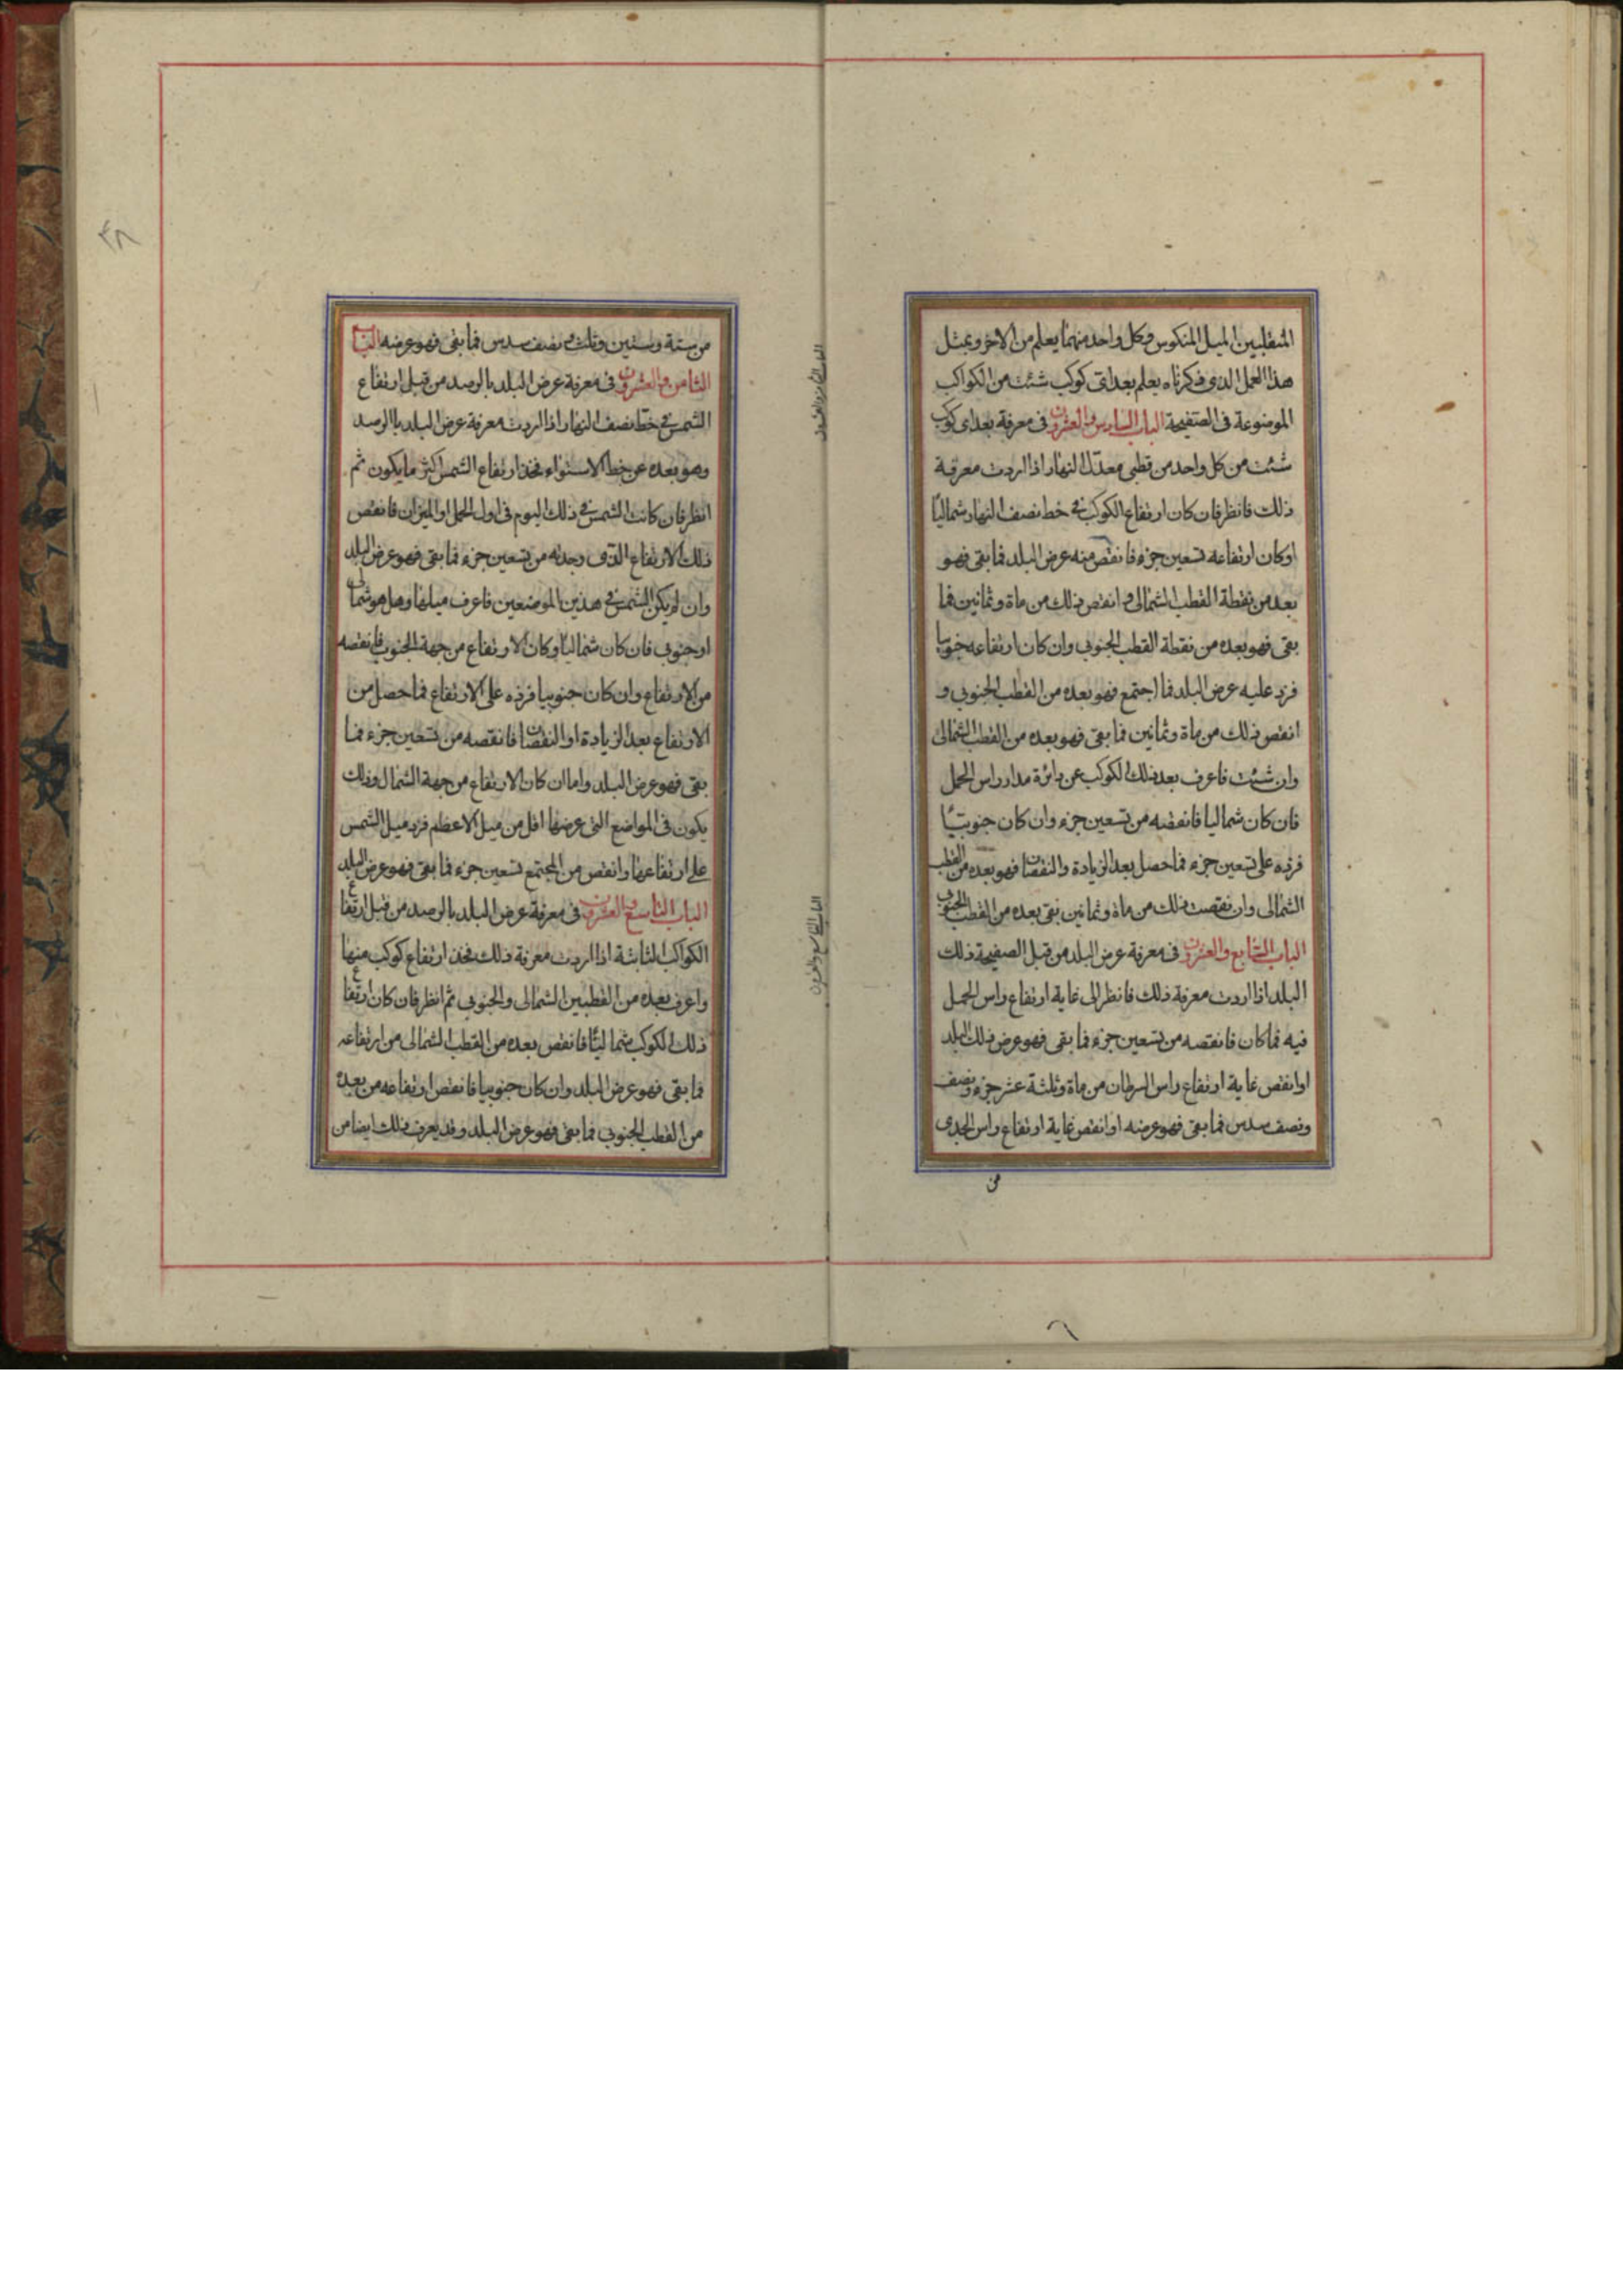 المنقلبين الميل المنكوس وكل واحد منهما يعلم من الاخر وبمثل
هذا العمل الذى ذكرناه يعلم بعد اى كوكب شئت من الكواكب
الموضوعة فى الصفيحة الباب السادس والعشرون فى معرفة بعد اى كوكب
شئت من كل واحد من قطبى معدّل النهار اذا اردت معرفة
ذلك فانظر فان كان ارتفاع الكوكب فى خط نصف النهار شماليًا
اوكان ارتفاعه تسعين جزء فانقص منه عرض البلد فما بقى فهو
بعده من نقطة القطب الشمالى وانقص ذلك من ماة وثمانين فما
بقى فهو بعده من نقطة القطب الجنوبى وان كان ارتفاعه جنوبيا
فزد عليه عرض البلد فما اجتمع فهو بعده من القطب الجنوبى و
انقص ذلك من ماة وثمانين فما بقى فهو بعده من القطب الشمالى
وان شئت فاعرف بعد ذلك الكوكب عن دائرة مدار راس الحمل
فان كان شماليا فانقصه من تسعين جزء وان كان جنوبيًا
فزده على تسعين جزء فما حصل بعد الزيادة والنقصان فهو بعده من القطب
الشمالى وان نقصت ذلك من ماة وثمانين بقى بعده من القطب الجنوبى
الباب السابع والعشرون فى معرفة عرض البلد من قبل الصفيحة ذلك
البلد اذا اردت معرفة ذلك فانظر الى غاية ارتفاع راس الحمل
فيه فما كان فانقصه من تسعين جزء فما بقى فهو عرض ذلك البلد
اوانقص غاية ارتفاع راس السرطان من ماة وثلثة عشر جزء ونصف
ونصف سدس فما بقى فهو عرضه اوانقص غاية ارتفاع راس الجدى
من
من ستة وستين وثلث ونصف سدس فما بقى فهو عرضه الباب
الثامن والعشرون فى معرفة عرض البلد بالرصد من قبل ارتفاع
الشمس فى خط نصف النهار اذا اردت معرفة عرض البلد بالرصد
وهو بعده عن خط الاستواء فخذ ارتفاع الشمس اكثر ما يكون ثم
انظر فان كانت الشمس فى ذلك اليوم فى اول الحمل او الميزان فانقص
ذلك الارتفاع الذى وجدته من تسعين جزء فما بقى فهو عرض البلد
وان لم يكن الشمس فى هذين الموضعين فاعرف ميلها وهل هو شمالى
اوجنوبى فان كان شماليًا وكان الارتفاع من جهة الجنوب فانقصه
من الارتفاع وان كان جنوبيا فزده على الارتفاع فما حصل من
الارتفاع بعد الزيادة او النقصان فانقصه من تسعين جزء فما
بقى فهو عرض البلد واما ان كان الارتفاع من جهة الشمال وذلك
يكون فى المواضع التى عرضها اقل من ميل الاعظم فزد ميل الشمس
على ارتفاعها وانقص من المجتمع تسعين جزء فما بقى فهو عرض البلد
الباب التاسع والعشرون فى معرفة عرض البلد بالرصد من قبل ارتفاع
الكواكب الثابتة اذا اردت معرفة ذلك فخذ ارتفاع كوكب منها
واعرف بعده من القطبين الشمالى والجنوبى ثم انظر فان كان ارتفاع
ذلك الكوكب شماليًا فانقص بعده من القطب الشمالى من ارتفاعه
فما بقى فهو عرض البلد وان كان جنوبيا فانقص ارتفاعه من بعده
من القطب الجنوبى فما بقى فهو عرض البلد وقد يعرف ذلك ايضا من
الباب الثامن والعشرون
الباب التاسع والعشرون
٣٨